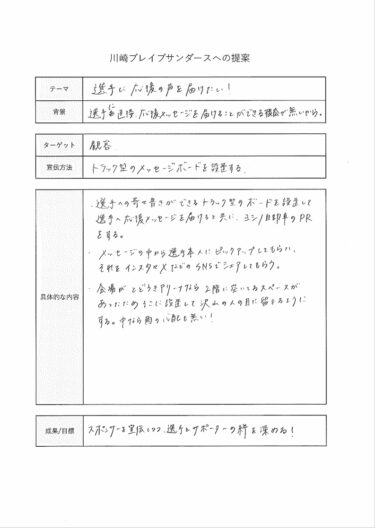 川崎ブレイブサンダースへの提案
テーマ 選手に応援の声を届けたい!
背景 選手に直接、応援メッセージを届けることができる機会が無いから。
ターゲット 観客
宣伝方法 トラック型のメッセージボードを設置する
具体的な内容
・選手への寄せ書きができるトラック型のボードを設置して
選手へ応援メッセージを届けると共に、ヨシノ自動車のPR
をする。
・メッセージの中から選手本人にピックアップしてもらい、
それをインスタやXなどのSNSでシェアしてもらう。
・会場がとどろきアリーナなら2階に空いてるスペースが
あったためそこに設置して沢山の人の目に留まるように
する。中なら雨の心配も無い!
成果/目標 スポンサーを宣伝しつつ、選手とサポーターの絆を深める!